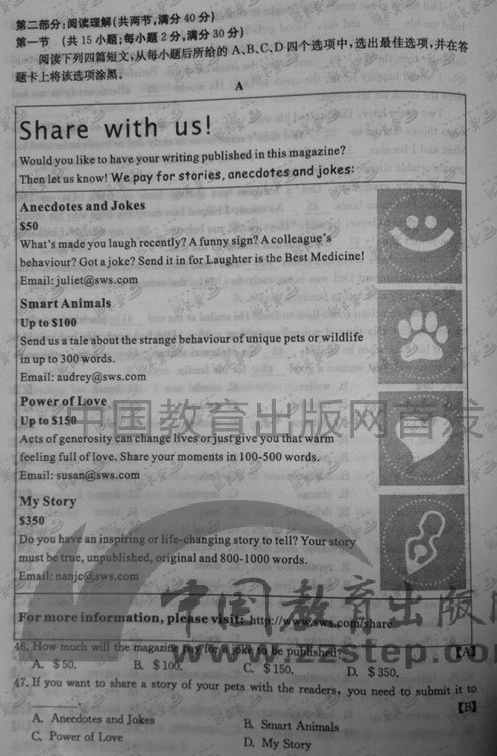 第二部分:阅读理解(共两节,满分 40 分)
第一节 (共 15 小题;每小题 2 分,满分 30 分)
阅读下列四篇短文,从每小题后所给的 A、B、C、D 四个选项中,选出最佳选项,并在答
题卡上将该选项涂黑。
A
Share with us!
Would you like to have your writing published in this magazine?
Then let us know! We pay for stories, anecdotes and jokes:
Anecdotes and Jokes
$50
What's made you laugh recently? A funny sign? A colleague's
behaviour? Got a joke? Send it in for Laughter is the Best Medicine!
Email: juliet@sws.com
Smart Animals
Up to $100
Send us a tale about the strange behaviour of unique pets or wildlife
in up to 300 words.
Email: audrey@sws.com
Power of Love
Up to $150
中国教育出版网首发
Acts of generosity can change lives or just give you that warm
feeling full of love. Share your moments in 100-500 words.
Email: susan@sws.com
My Story
$350
Do you have an inspiring or life-changing story to tell? Your story
must be true, unpublished, original and 800-1000 words.
Email: nanjc@sws.com
中国教育出版
For more information, please visit: http://www.sws.com/share
46. How much will the magazine pay for a joke to be published? 【A】
www.zzstep.com
A. $50. B. $100. C. $150. D. $350.
47. If you want to share a story of your pets with the readers, you need to submit it to
【B】
A. Anecdotes and Jokes B. Smart Animals
C. Power of Love D. My Story